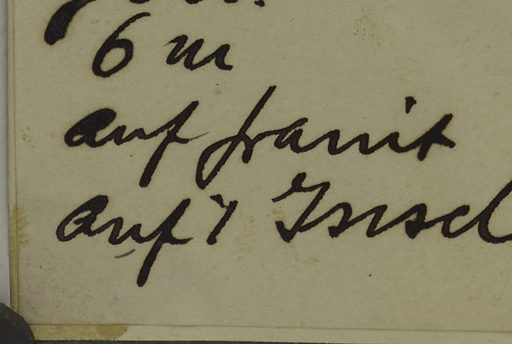 6 m
auf Granit
auf 1 Insel